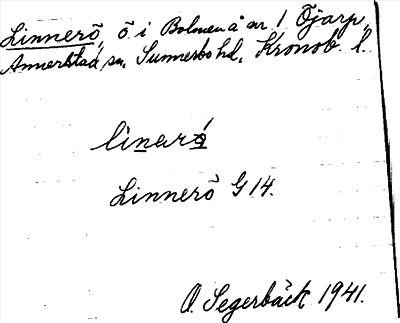 Linnerö, ö i Bolmen å nr 1 Öjarp,
Annerstad sn. Sunnerbo hd. Kronob. l.
linerö́
Linnerö G 14.
O. Segerbäck 1941.